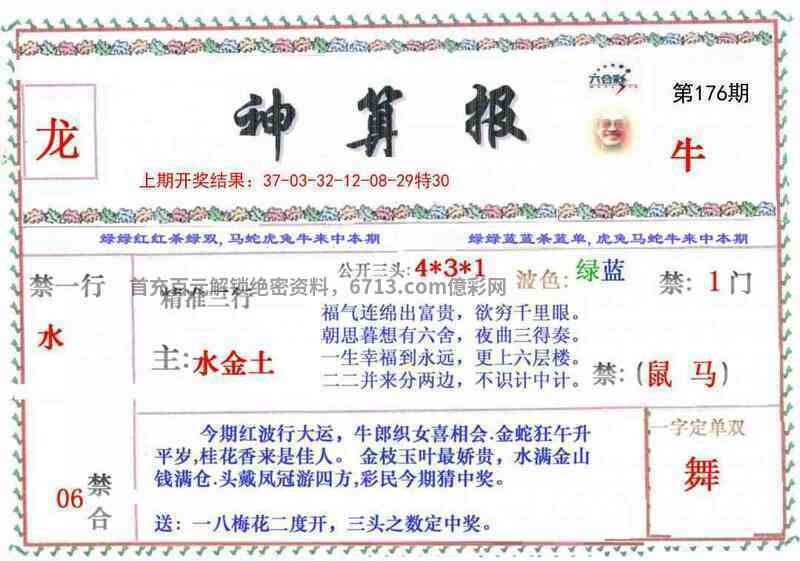 六合彩
第176期
龙
神算报
牛
上期开奖结果：37-03-32-12-08-29特30
绿绿红红杀绿双, 马蛇虎兔牛来中本期
绿绿蓝蓝杀蓝单, 虎兔马蛇牛来中本期
公开三头: 4*3*1
波色: 绿蓝
禁: 1门
禁一行
首充百元解锁绝密资料，6713.com億彩网
精准三行
水
主: 水金土
福气连绵出富贵，欲穷千里眼。
朝思暮想有六舍，夜曲三得奏。
一生幸福到永远，更上六层楼。
二二并来分两边，不识计中计。
禁: (鼠 马)
今期红波行大运，牛郎织女喜相会.金蛇狂午升
平岁,桂花香来是佳人。 金枝玉叶最娇贵，水满金山
钱满仓.头戴凤冠游四方,彩民今期猜中奖。
送：一八梅花二度开，三头之数定中奖。
06
禁合
一字定单双
舞